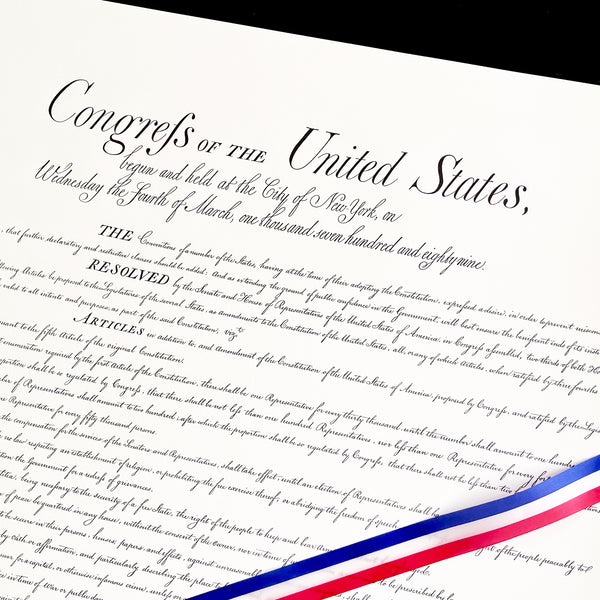 Congreſs OF THE United States,
begun and held at the City of New-York, on
Wednesday the Fourth of March, one thousand seven hundred and eighty nine.
THE Conventions of a number of the States, having at the time of their adopting the Constitution, expreſsed a desire, in order to prevent
, that further declaratory and restrictive clauses should be added: And as extending the ground of public confidence in the Government, will best insure the beneficent ends of its
RESOLVED by the Senate and House of Representatives of the United States of America, in Congreſs aſsembled, two thirds of both
Articles be proposed to the Legislatures of the several States, as amendments to the Constitution of the United States, all, or any of which Articles, when ratified by three fourths
valid to all intents and purposes, as part of the said Constitution; vizt
ARTICLES in addition to, and Amendment of the Constitution of the United States of America, proposed by Congreſs, and ratified by the
to the fifth Article of the original Constitution.
enumeration required by the first Article of the Constitution, there shall be one Representative for every thirty thousand, until the number shall amount to one
shall be so regulated by Congreſs, that there shall be not leſs than one hundred Representatives, nor leſs than one Representative for every
of Representatives shall amount to two hundred, after which the proportion shall be so regulated by Congreſs, that there shall not be leſs than two
Representative for every fifty thousand persons.
the compensation for the services of the Senators and Representatives, shall take effect, until an election of Representatives shall
law respecting an establishment of religion, or prohibiting the free exercise thereof; or abridging the freedom of speech
the Government for a redreſs of grievances.
being neceſsary to the security of a free State, the right of the people to keep and bear
right of the people peaceably to
of peace be quartered in any house, without the consent of the owner, nor in time of
to be prescribed by
to be secure in their persons, houses, papers, and effects, against unreasonable
by Oath or affirmation, and particularly describing the place to
for a capital, or otherwise infamous crime, unleſs on
in time of War or public